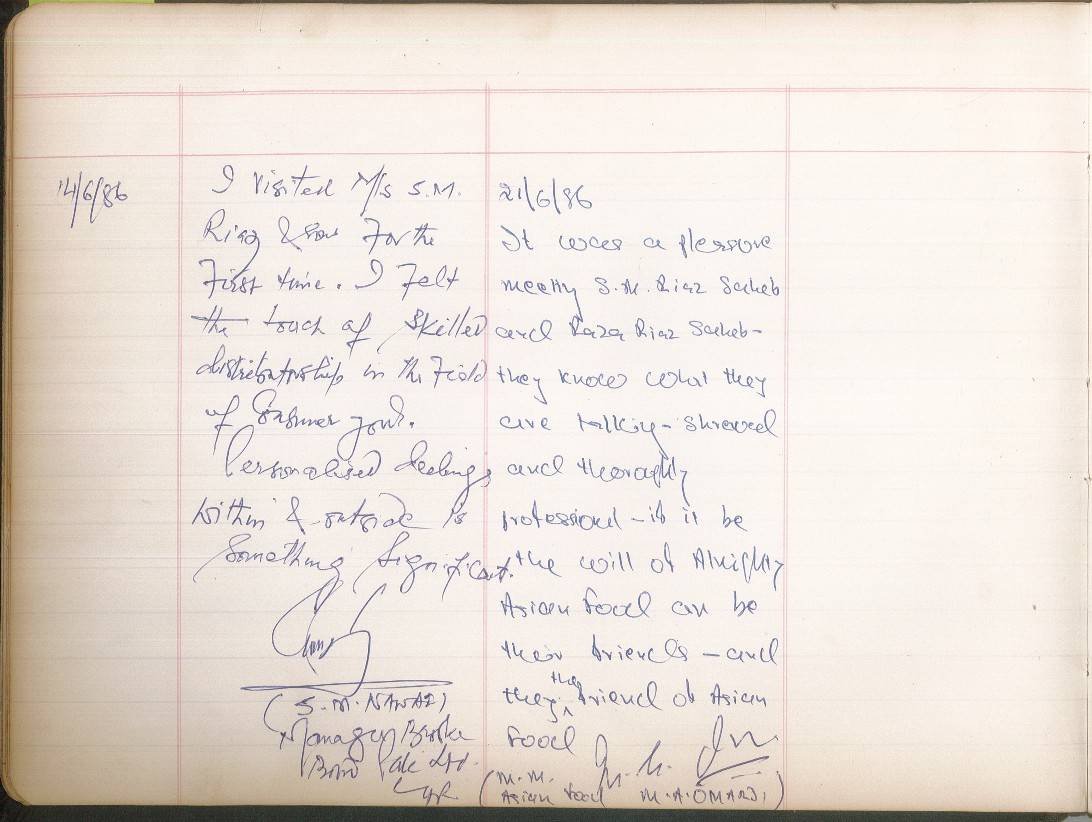 14/6/86
I visited M/s S.M.
Riaz & Sons For the
First time. I Felt
the touch of Skilled
distributorship in the Field
of Consumer goods.
Personalised dealings
within & outside is
Something Significant.
(S.M. NAWAZ)
Manager Brooke
Bond Pak Ltd.
21/6/86
It was a plersure
meeting S.M. Riaz Saheb
and Raza Riaz Saheb-
they know what they
are talking - shrewd
and thoroghly
professional - if it be
the will of Almighty
Asian Food can be
their friends - and
they, the friend of Asian
Food
(M.M.
Asian Food M.A. OMARJI)